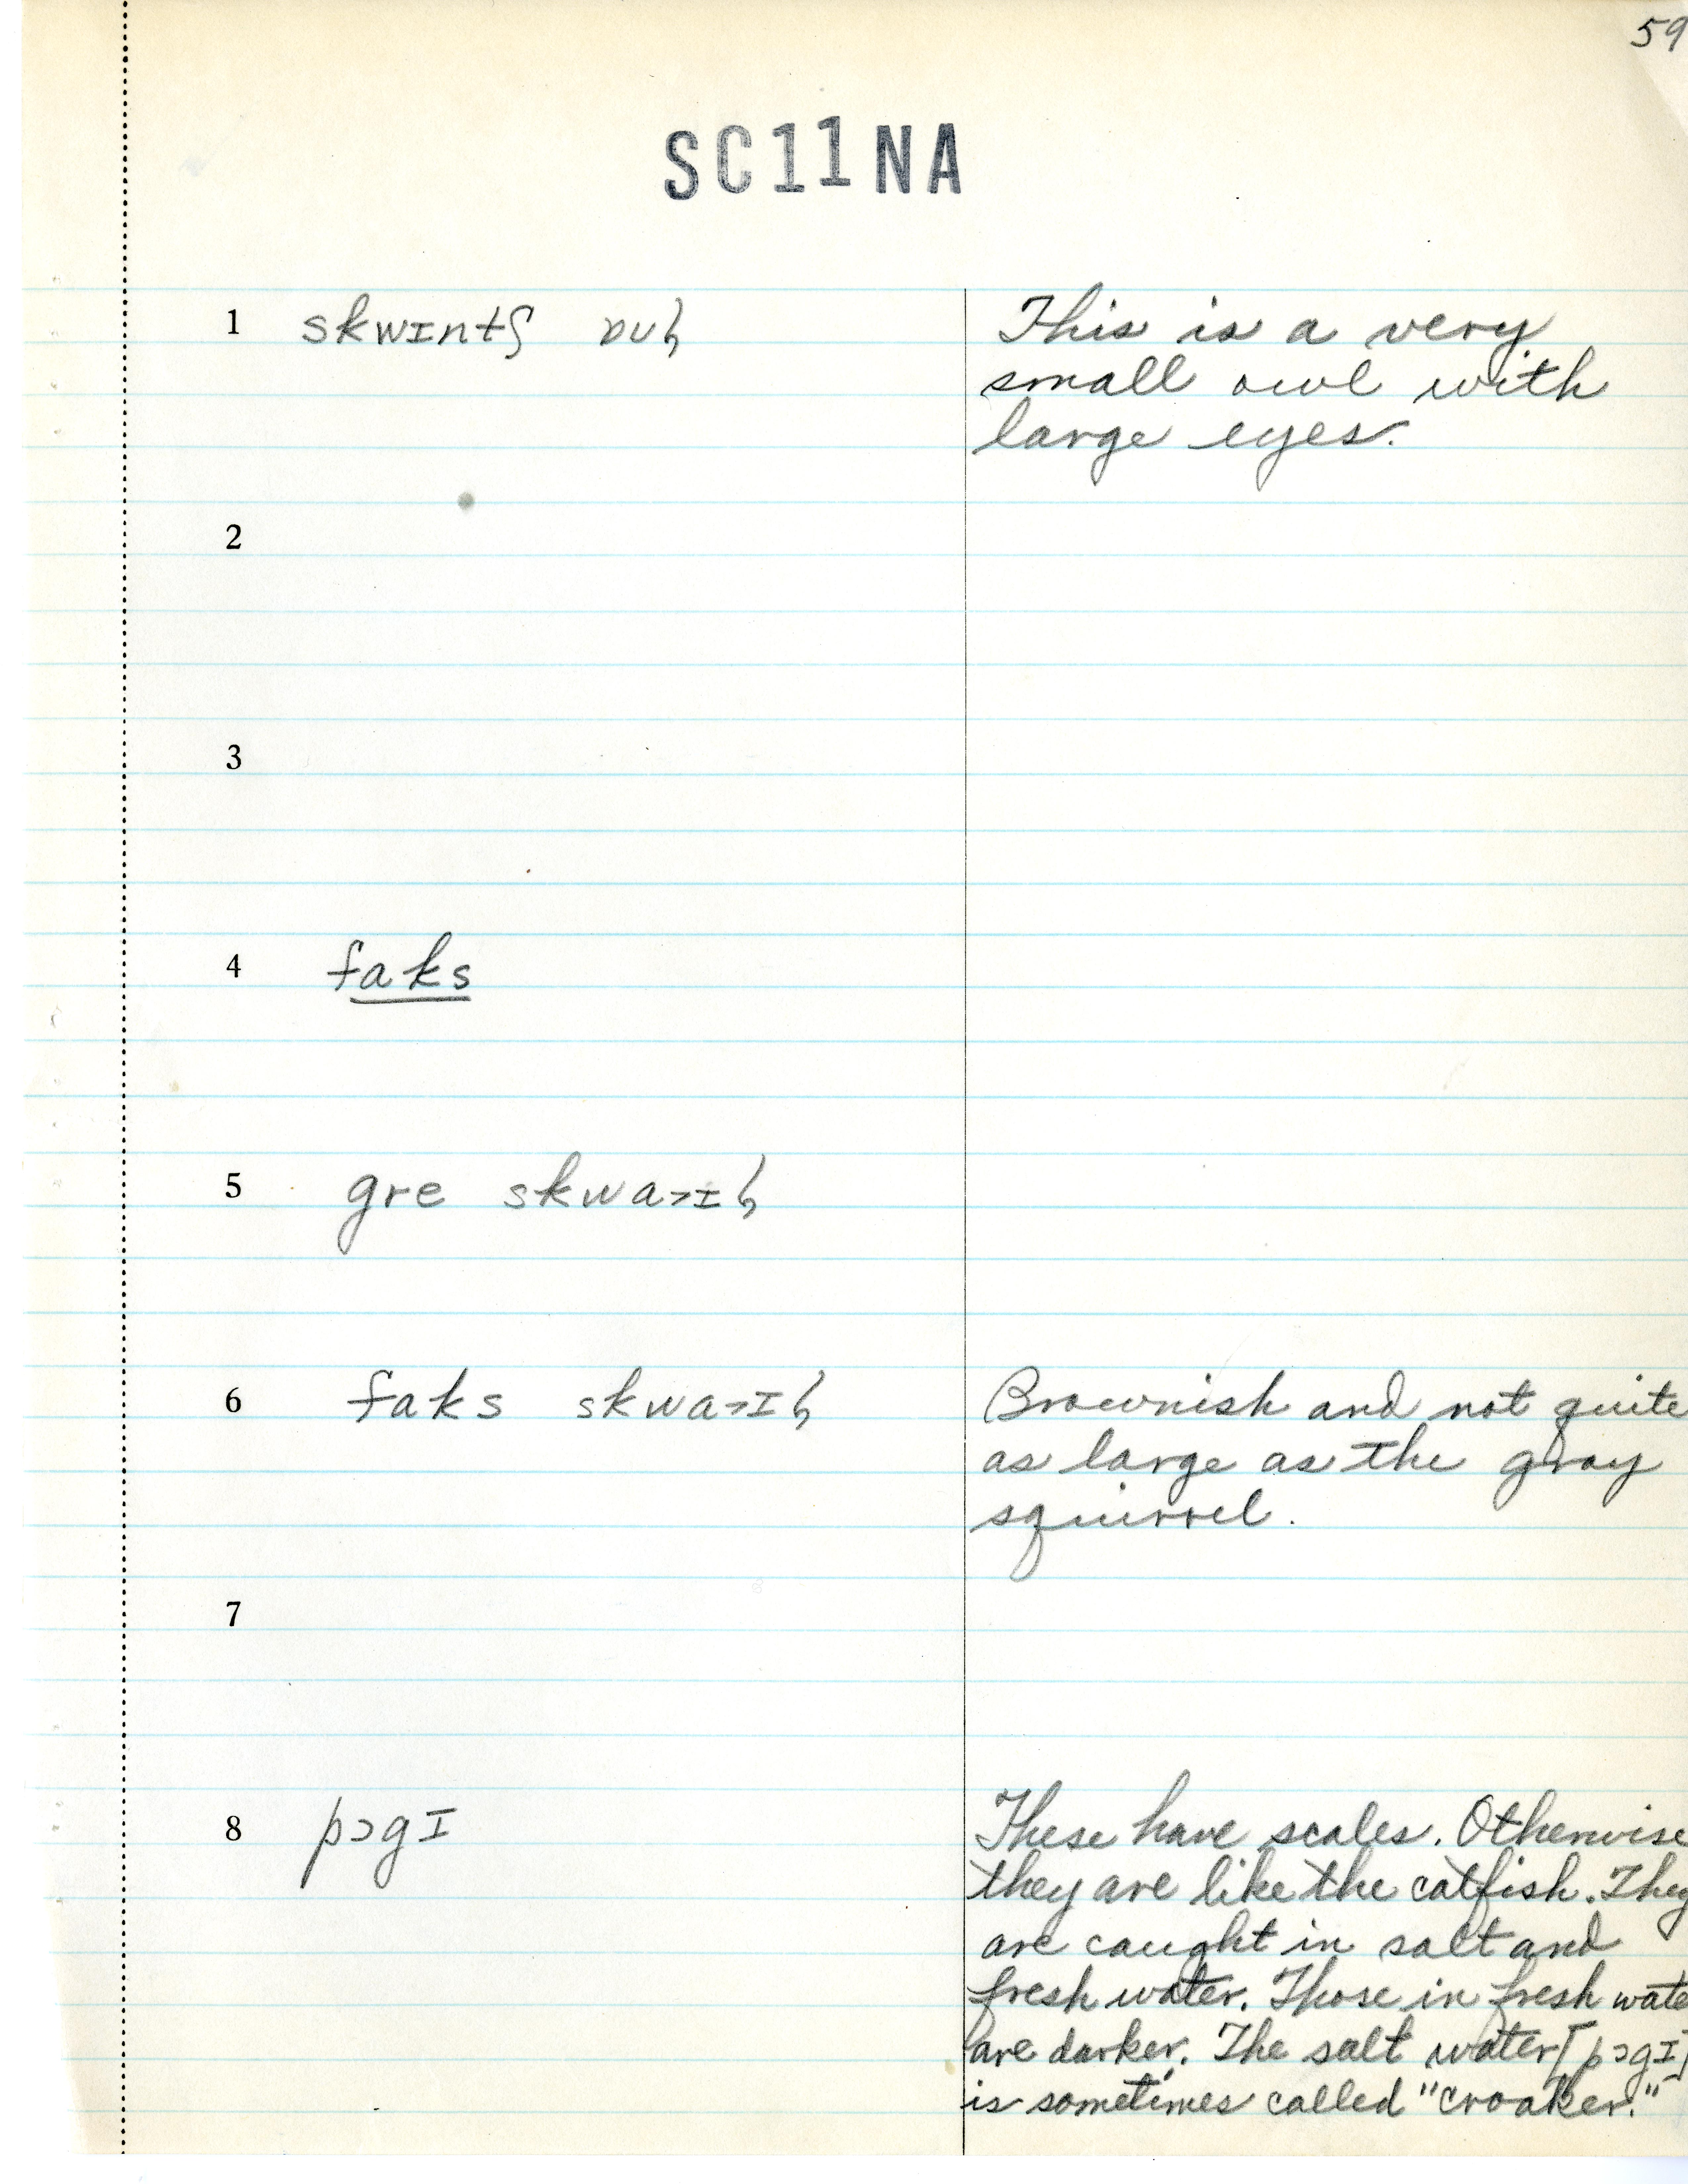 59
SC11NA
1 skwɪntʃ ɒʊɫ
This is a very
small owl with
large eyes.
2
3
4 faks
5 gre skwaɪɫ
6 faks skwaɪɫ
Brownish and not quite
as large as the gray
squirrel.
7
8 pɔgɪ
These have scales. Otherwise
they are like the catfish. They
are caught in salt and
fresh water. Those in fresh wate
are darker. The salt water [pɔgɪ]
is sometimes called "croaker."